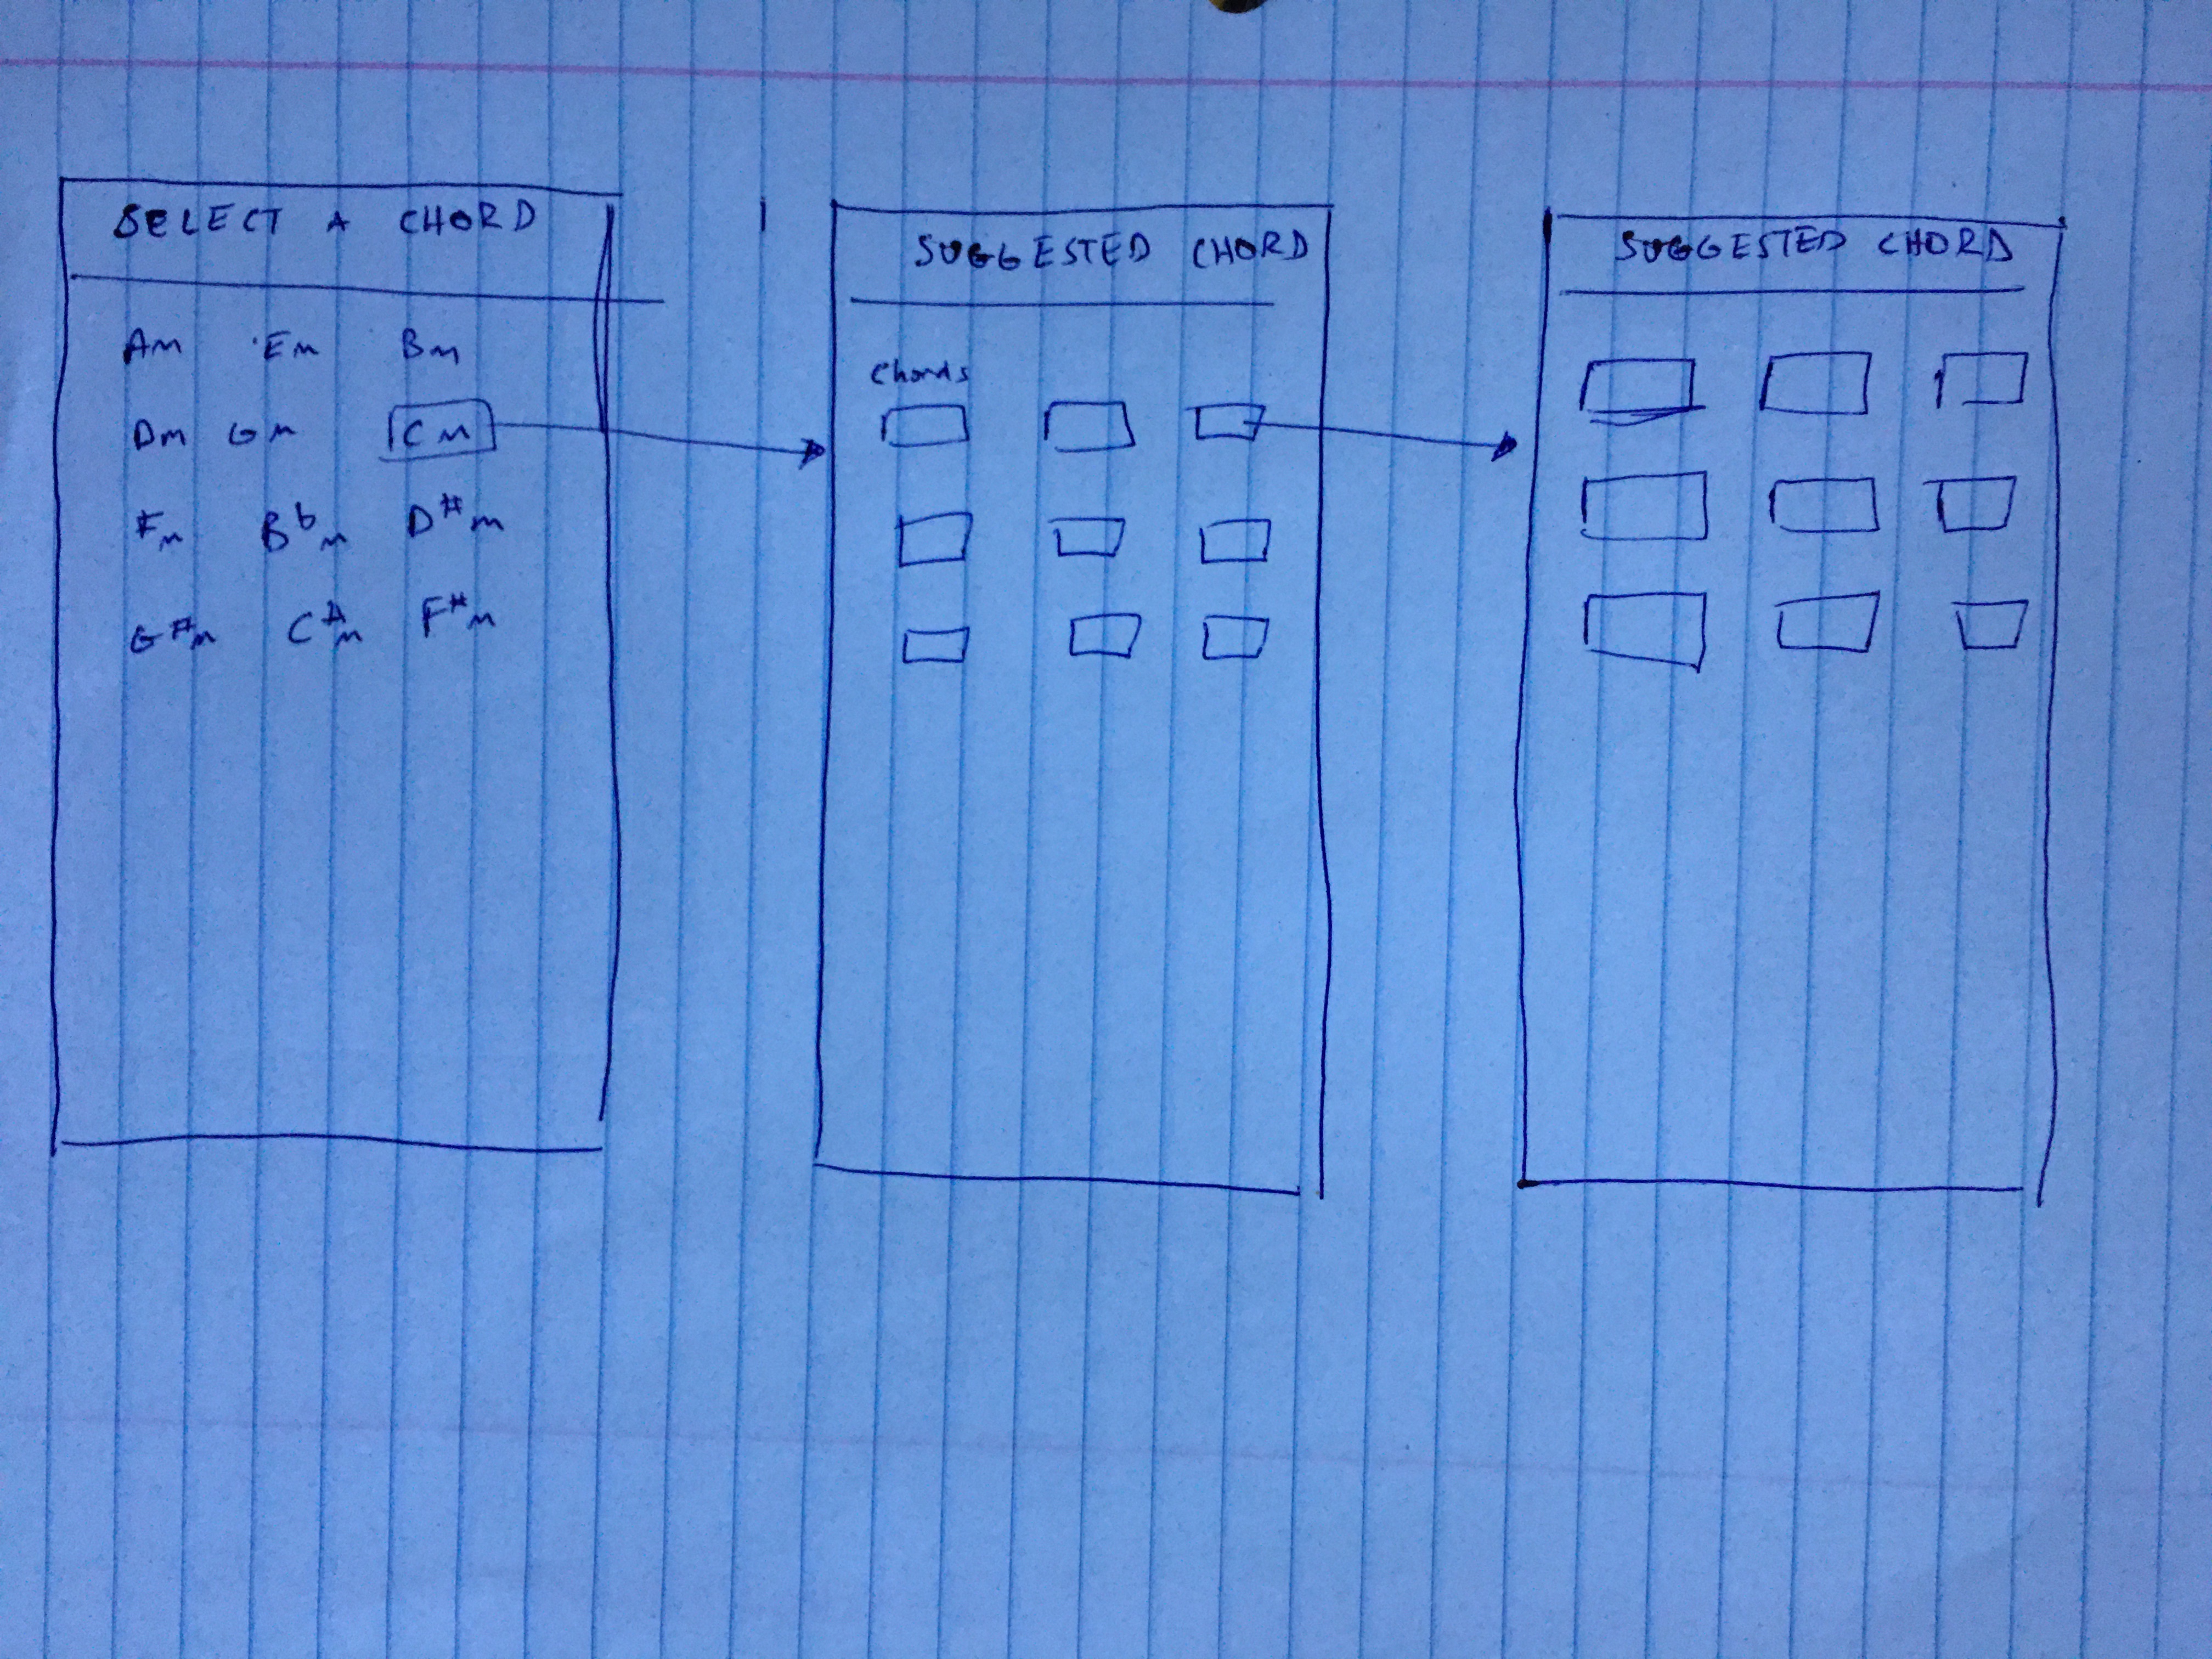 SELECT A CHORD
Am Em Bm
Dm Gm Cm
Fm Bbm D#m
G#m C#m F#m
SUGGESTED CHORD
Chords
SUGGESTED CHORD